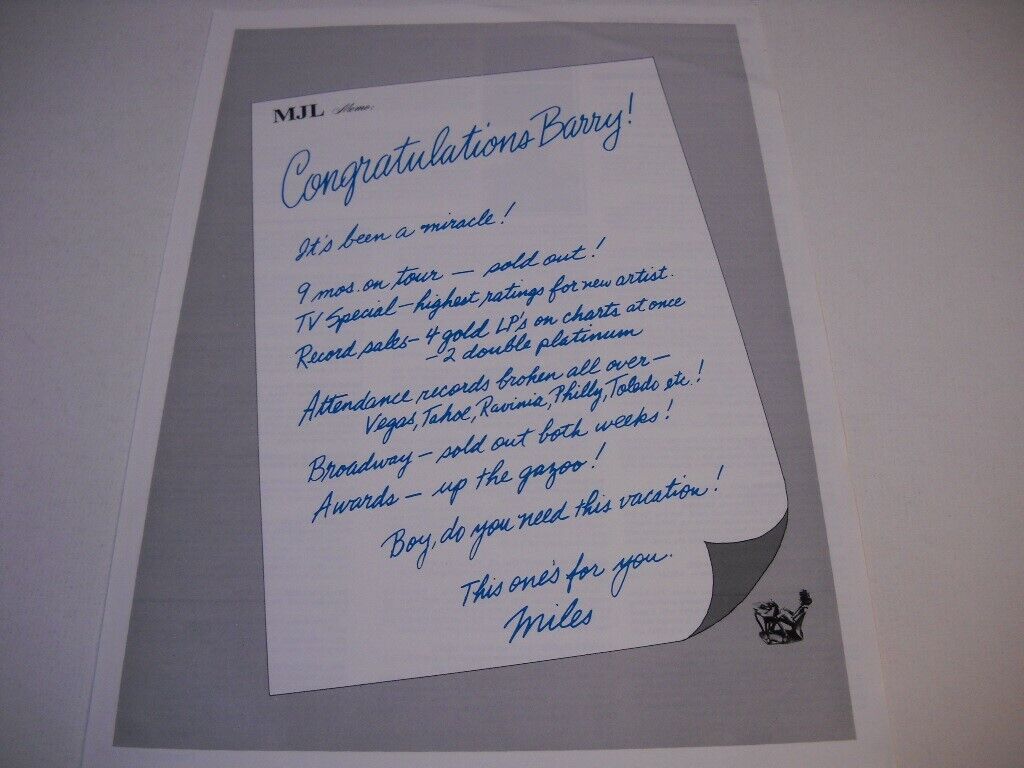 MJL Memo:
Congratulations Barry!
It's been a miracle!
9 mos. on tour — sold out!
TV Special — highest ratings for new artist.
Record sales - 4 gold LP's on charts at once
- 2 double platinum
Attendance records broken all over —
Vegas, Tahoe, Ravinia, Philly, Toledo etc.!
Broadway — sold out both weeks!
Awards — up the gazoo!
Boy, do you need this vacation!
This one's for you.
Miles